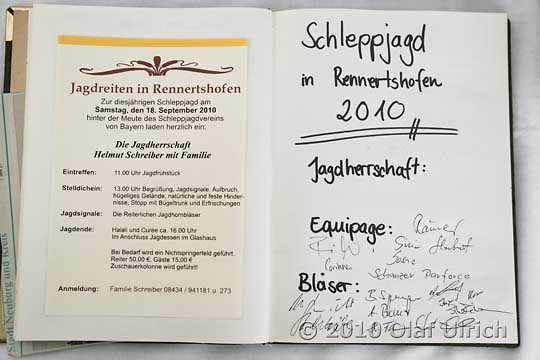 Jagdreiten in Rennertshofen
Zur diesjährigen Schleppjagd am
Samstag, den 18. September 2010
hinter der Meute des Schleppjagdvereins
von Bayern laden herzlich ein:
Die Jagdherrschaft
Helmut Schreiber mit Familie
Eintreffen: 11.00 Uhr Jagdfrühstück
Stelldichein: 13.00 Uhr Begrüßung, Jagdsignale, Aufbruch,
hügeliges Gelände, natürliche und feste Hinder-
nisse, Stopp mit Bügeltrunk und Erfrischungen
Jagdsignale: Die Reiterlichen Jagdhornbläser
Jagdende: Halali und Curée ca. 16.00 Uhr
Im Anschluss Jagdessen im Glashaus
Bei Bedarf wird ein Nichtspringerfeld geführt.
Reiter 50,00 €, Gäste 15,00 €
Zuschauerkolonne wird geführt!
Anmeldung: Familie Schreiber 08434 / 941181 u. 273
Stadt Neuburg und Kreis
Schleppjagd
in Rennertshofen
2010
Jagdherrschaft:
Equipage:
Corinna
Schanzer Parforce
Bläser:
© 2010 Olaf Ullrich